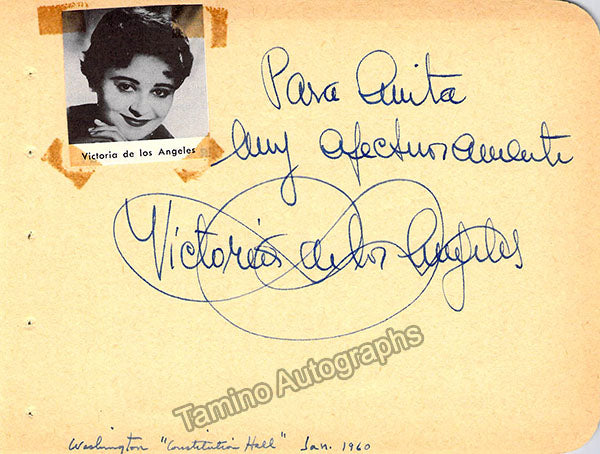 Victoria de los Angeles
Para Anita
muy afectuosamente
Victoria de los Angeles
Tamino Autographs
Washington "Constitution Hall" Jan. 1960